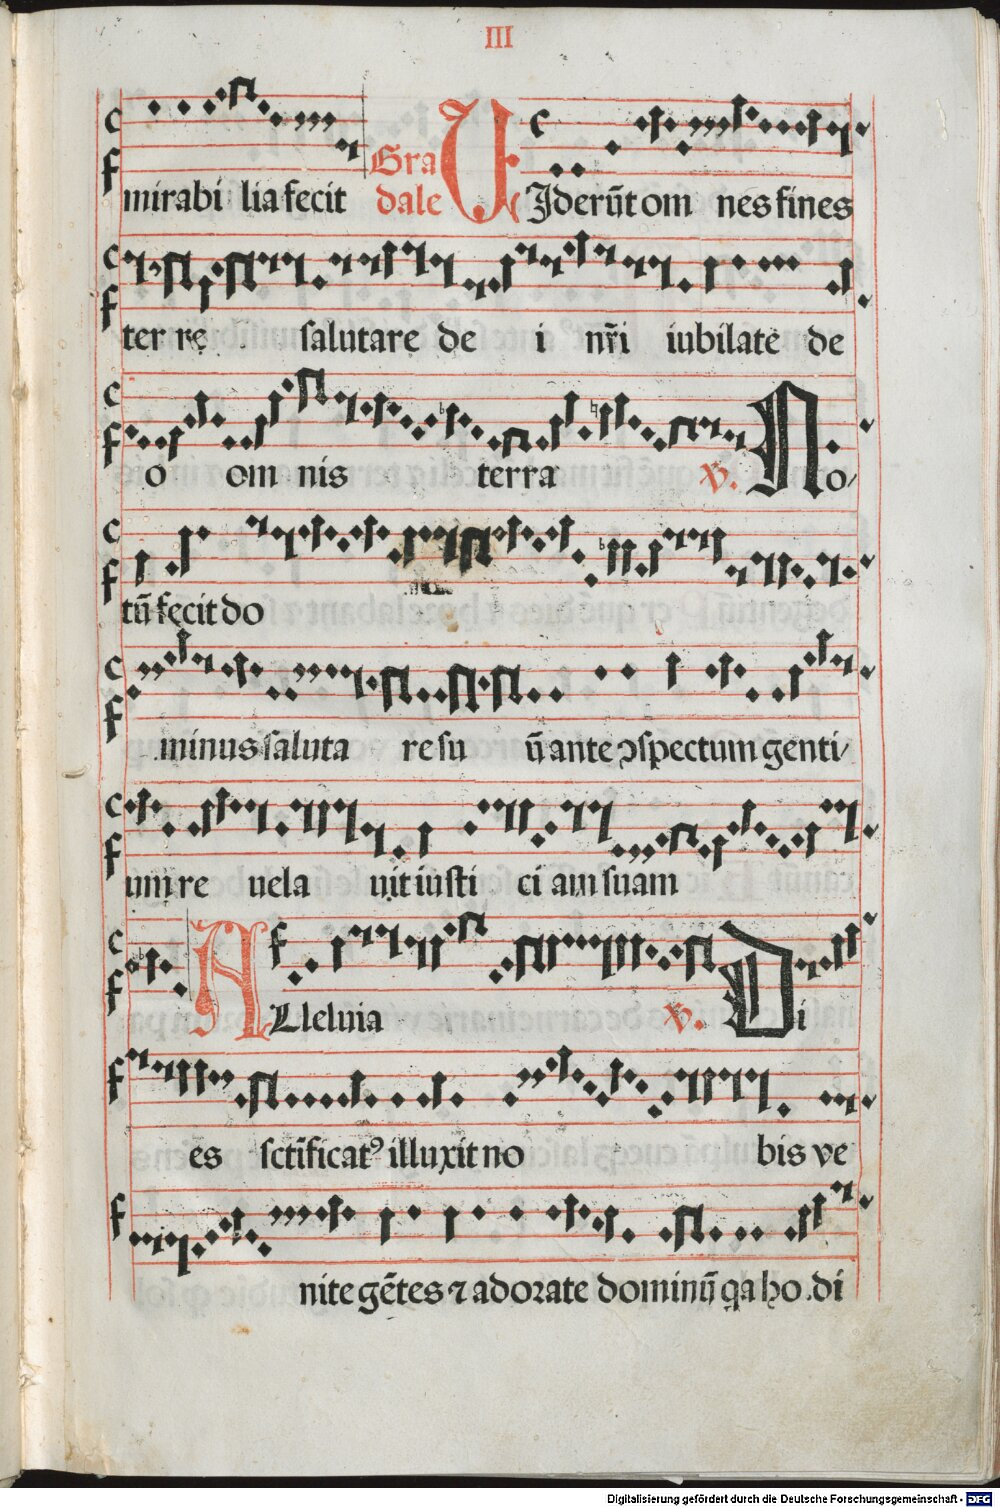 III
mirabi lia fecit Gra dale VIderūt om nes fines
ter re salutare de i nr̄i iubilate de
o om nis terra V. No
tū fecit do
minus saluta re su ū ante ↄspectum genti
um re uela uit iusti ci am suam
ALleluia V. Di
es sctīficatꝰ illuxit no bis ve
nite gētes ⁊ adorate dominū qa ho di
Digitalisierung gefördert durch die Deutsche Forschungsgemeinschaft - DFG